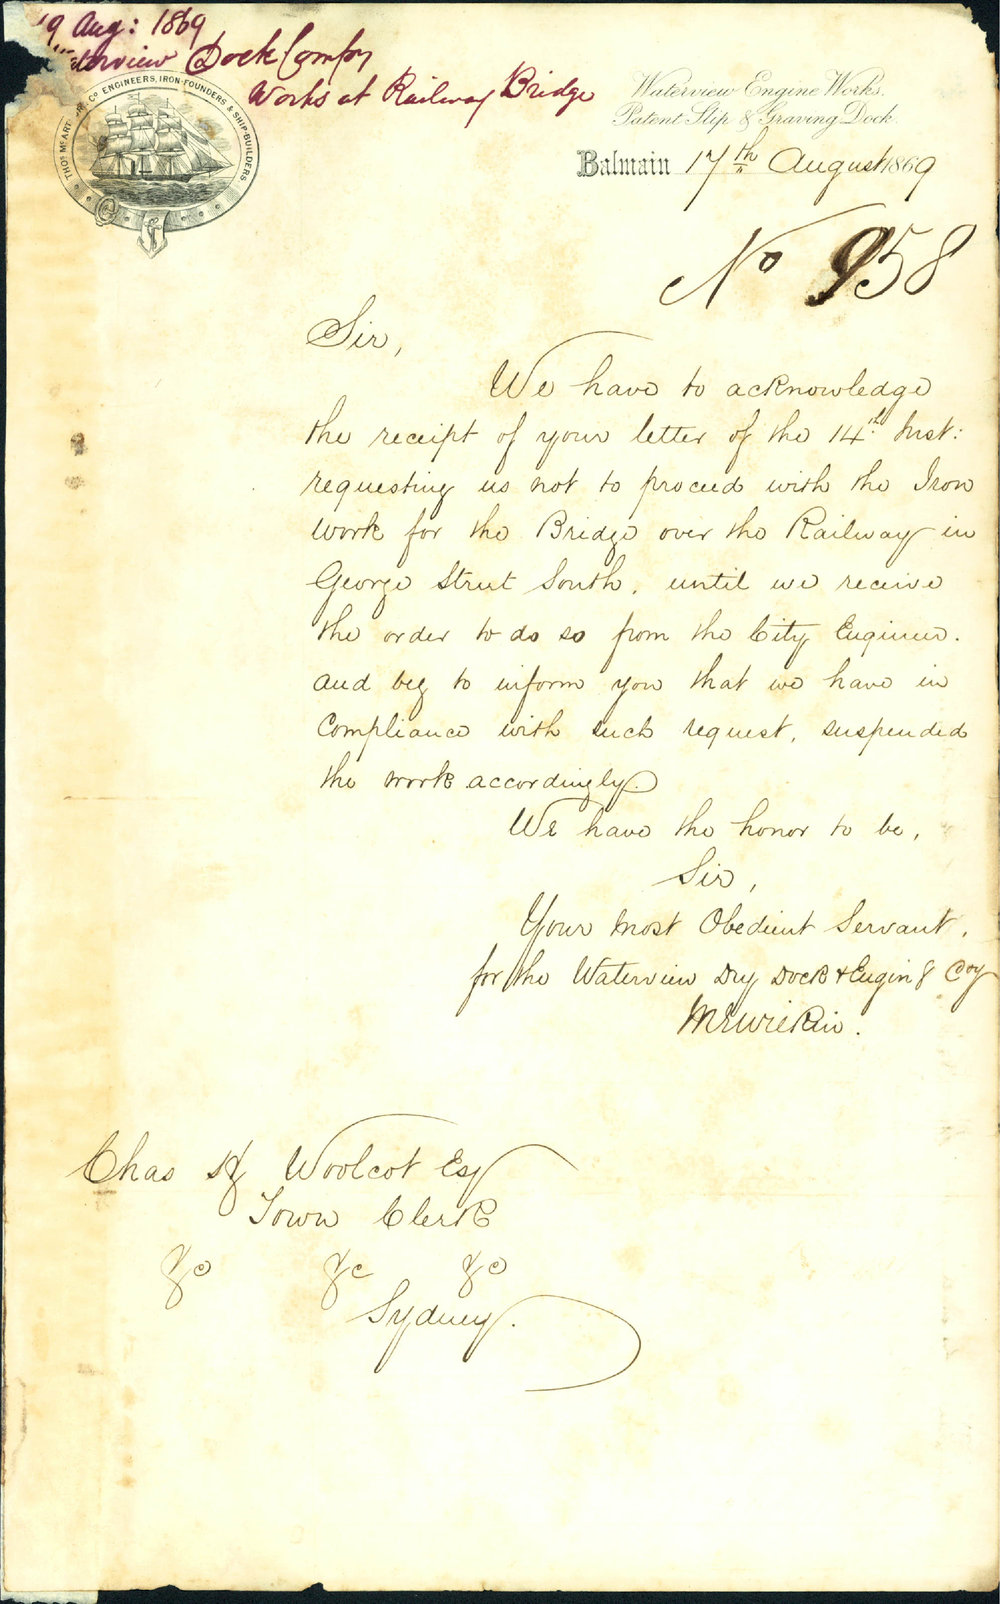 19 Aug: 1869
Waterview Dock Compy
Works at Railway Bridge
THOS McARTHUR & Co ENGINEERS, IRON-FOUNDERS & SHIP-BUILDERS.
Waterview Engine Works.
Patent Slip & Graving Dock.
Balmain 17th August 1869
No 958
Sir,
We have to acknowledge
the receipt of your letter of the 14th Inst:
requesting us not to proceed with the Iron
work for the Bridge over the Railway in
George Street South, until we receive
the order to do so from the City Engineer.
and beg to inform you that we have in
Compliance with such request, suspended
the work accordingly.
We have the honor to be,
Sir,
Your most Obedient Servant,
for the Waterview Dry Dock & Engin g Coy
Chas H Woolcot Esq
Town Clerk
&c &c &c
Sydney.